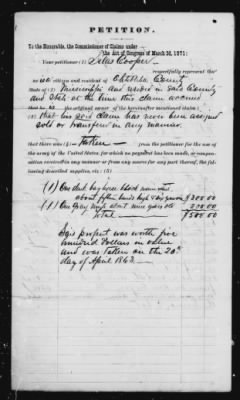 PETITION.
To the Honorable, the Commissioner of Claims under
the Act of Congress of March 3d, 1871:
Your petitioner (1) Cooper
respectfully represent that
he is a citizen and resident of County
State of (2) Mississippi and resided in said County
and State at the time this claim accrued
that he is the original owner of the hereinafter mentioned claim;
(3) that his said claim has never been assigned
sold or transferred in any manner.
that there was (4) Taken from the petitioner for the use of
the army of the United States for which no people has been made, or compen-
sation received in any manner or from any source for any part thereof, the fol-
lowing described supplies, etc.: (5)
(1) One dark bay horse
about fifteen hands high & six years $300.00
(1) One Gray mule about nine years old 200.00
Total $500.00
Said property was worth five
hundred dollars in value
and was taken on the 20th
day of April 1863.